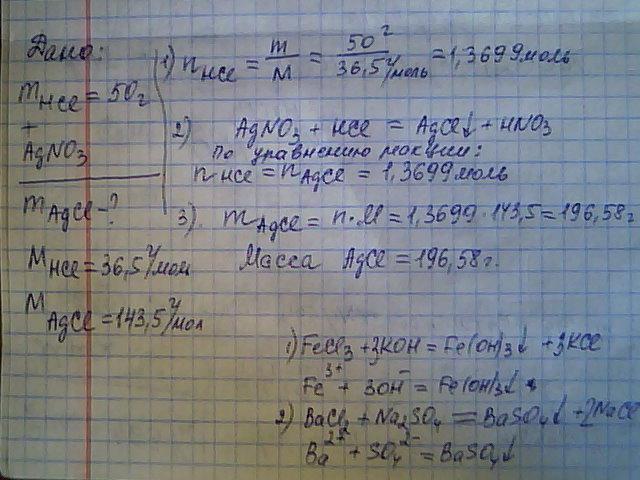 Дано:
m HCl = 50г
+
AgNO3
m AgCl - ?
M HCl = 36,5 г/мол
M AgCl = 143,5 г/мол
1) n HCl = m/M = 50г/36,5 г/моль = 1,3699 моль
2) AgNO3 + HCl = AgCl↓ + HNO3
По уравнению реакции:
n HCl = n AgCl = 1,3699 моль
3). m AgCl = n·M = 1,3699·143,5 = 196,58г
Масса AgCl = 196,58г.
1) FeCl3 + 3KOH = Fe(OH)3↓ + 3KCl
Fe3+ + 3OH- = Fe(OH)3↓
2) BaCl2 + Na2SO4 = BaSO4↓ + 2NaCl
Ba2+ + SO4 2- = BaSO4↓